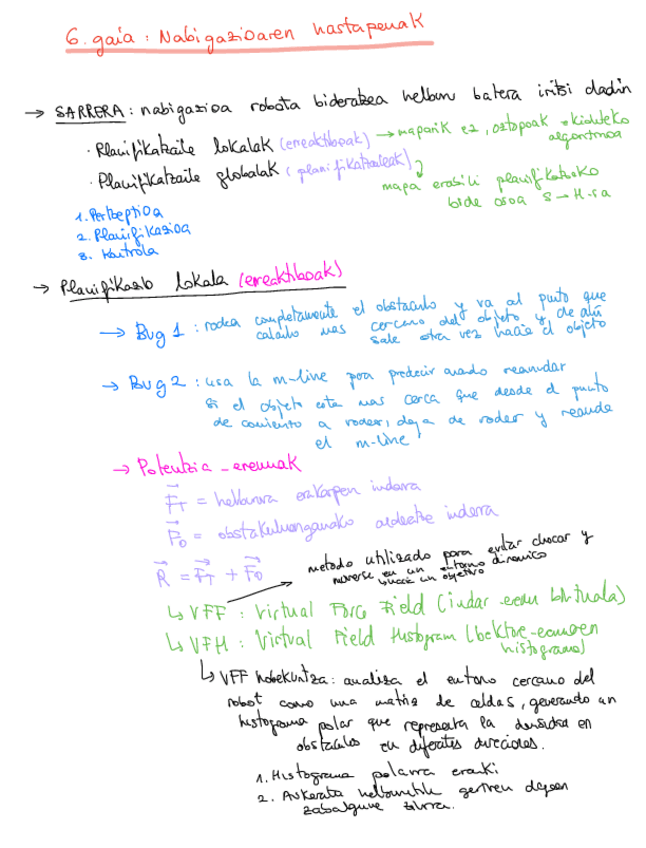 6. gaia : Nabigazioaren hastapenak
→ SARRERA : nabigazioa robota bideratzea helburu batera iritsi dadin
· Planifikatzaile lokalak (erreaktiboak) → maparik ez, oztopoak ekiditeko algoritmoa
· Planifikatzaile globalak (planifikatzaileak)
mapa erabili planifikatzeko bide osoa S → H-ra
1. Pertzeptioa
2. Planifikazioa
3. Kontrola
→ Planifikazio lokala (erreaktiboak)
→ Bug 1 : rodea completamente el obstaculo y va al punto que
calculo mas cercano del objeto y de ahí
sale otra vez hacia el objeto
→ Bug 2 : usa la m-line para predecir cuando reanudar
si el objeto esta mas cerca que desde el punto
de comienzo a rodear, deja de rodear y reanuda
el m-line
→ Potentzia-eremuak
F_T = helburura erakarpen indarra
F_O = obstakuluenganako aldentze indarra
R = F_T + F_O
metodo utilizado para evitar chocar y
moverse en un entorno dinamico
un objetivo
↳ VFF : Virtual Force Field (indar-eremu birtuala)
↳ VFH : Virtual Field Histogram (bektore-eremuen
histograma)
↳ VFF hobekuntza : analiza el entorno cercano del
robot como una matriz de celdas, generando un
histograma polar que representa la densidad en
obstaculos en diferentes direcciones.
1. Histograma polarra eraiki
2. Aukeratu helburutik gertuen dagoen
zabalgune